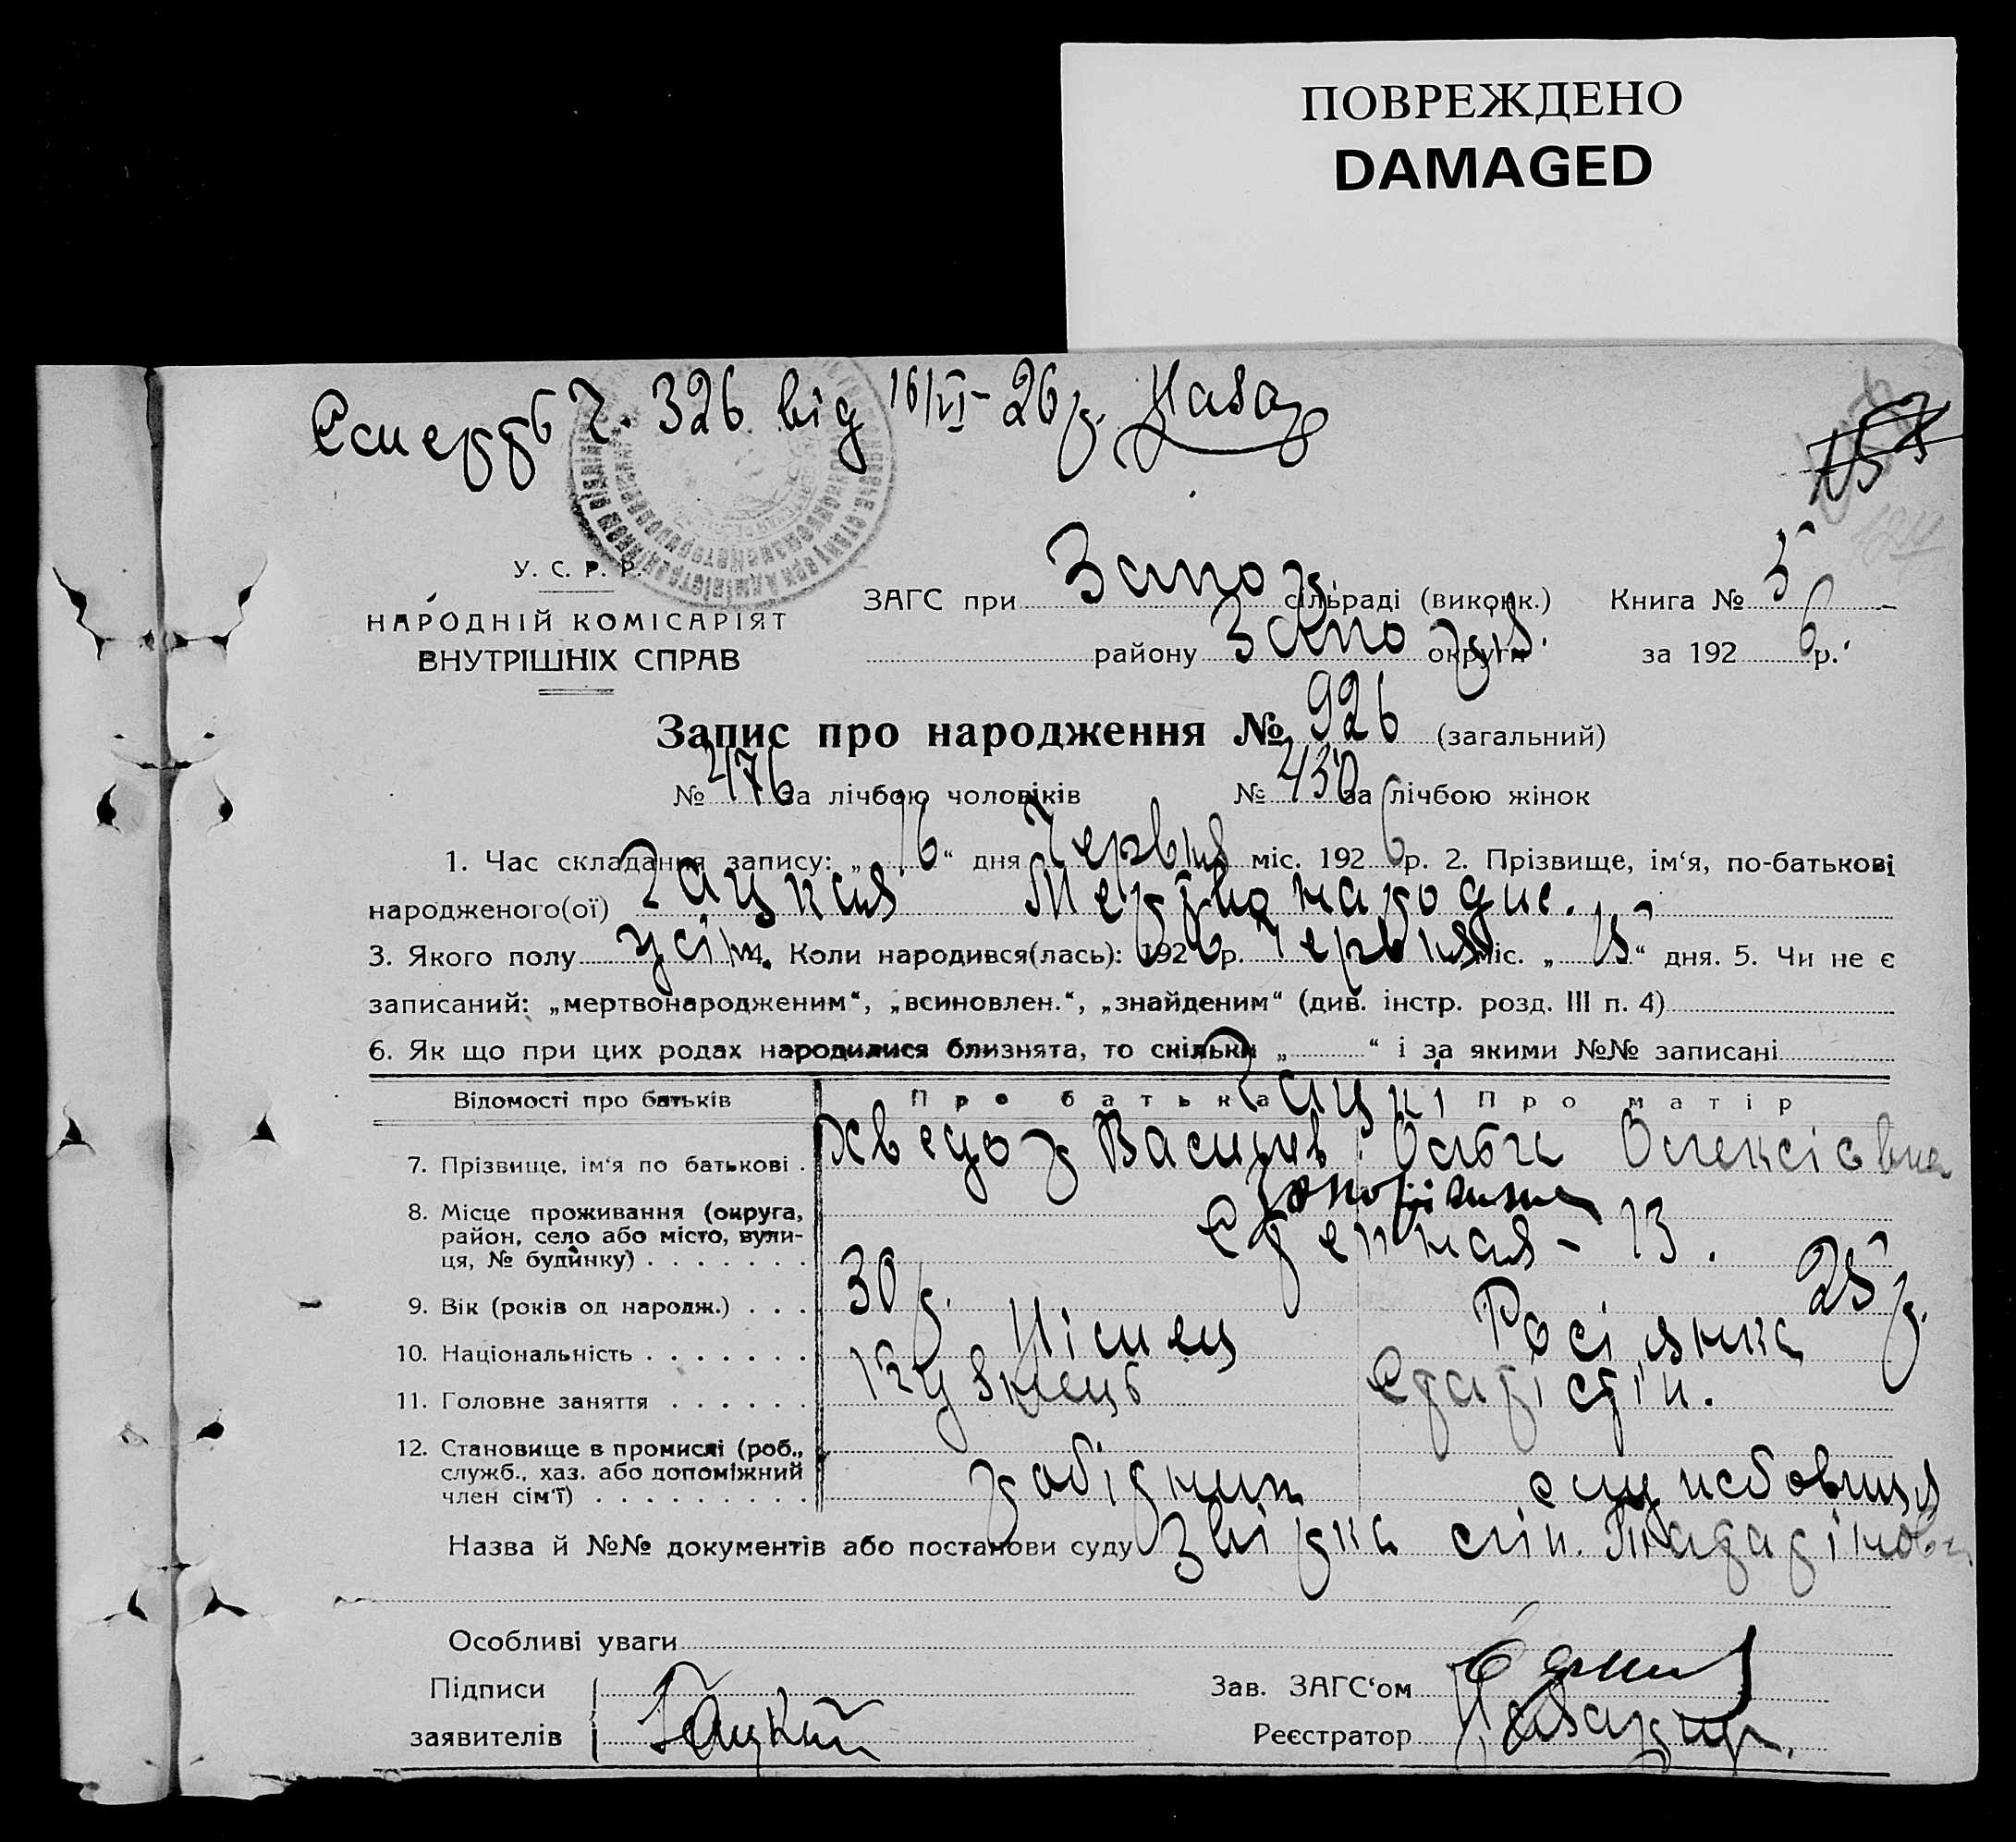 ПОВРЕЖДЕНО
DAMAGED
Смерть Ч. 326 від 16/VI–26 р.
У. С. Р. Р.
НАРОДНІЙ КОМІСАРІЯТ
ВНУТРІШНІХ СПРАВ
ЗАГС при Запор. сільраді (виконк.) Книга № 5
району Запоріз. округи за 1926 р.
Запис про народження № 926 (загальний)
№ 476 за лічбою чоловіків № 450 за лічбою жінок
1. Час складання запису: „16“ дня Червня міс. 1926 р. 2. Прізвище, ім‘я, по-батькові
народженого(ої) Гацкая Мертвонародне.
3. Якого полу жін. 4. Коли народився(лась): 1926 р. Червня міс. „15“ дня. 5. Чи не є
записаний: „мертвонародженим“, „всиновлен.“, „знайденим“ (див. інстр. розд. III п. 4)
6. Як що при цих родах народилися близнята, то скільки „ “ і за якими №№ записані
Відомості про батьків Про батька Про матір
Гацкі
7. Прізвище, ім‘я по батькові . Федор Васильев. Ольга Олексієвна
8. Місце проживання (округа, район, село або місто, вулиця, № будинку) Запоріжжя
13.
9. Вік (років од народж.) 30 р. 25 р.
10. Національність Німец Росіянка
11. Головне заняття
12. Становище в промислі (роб., служб., хаз. або допоміжний член сім‘ї) робітник службовиця
Назва й №№ документів або постанови суду
Особливі уваги
Підписи заявителів Гацкий
Зав. ЗАГС‘ом
Реєстратор